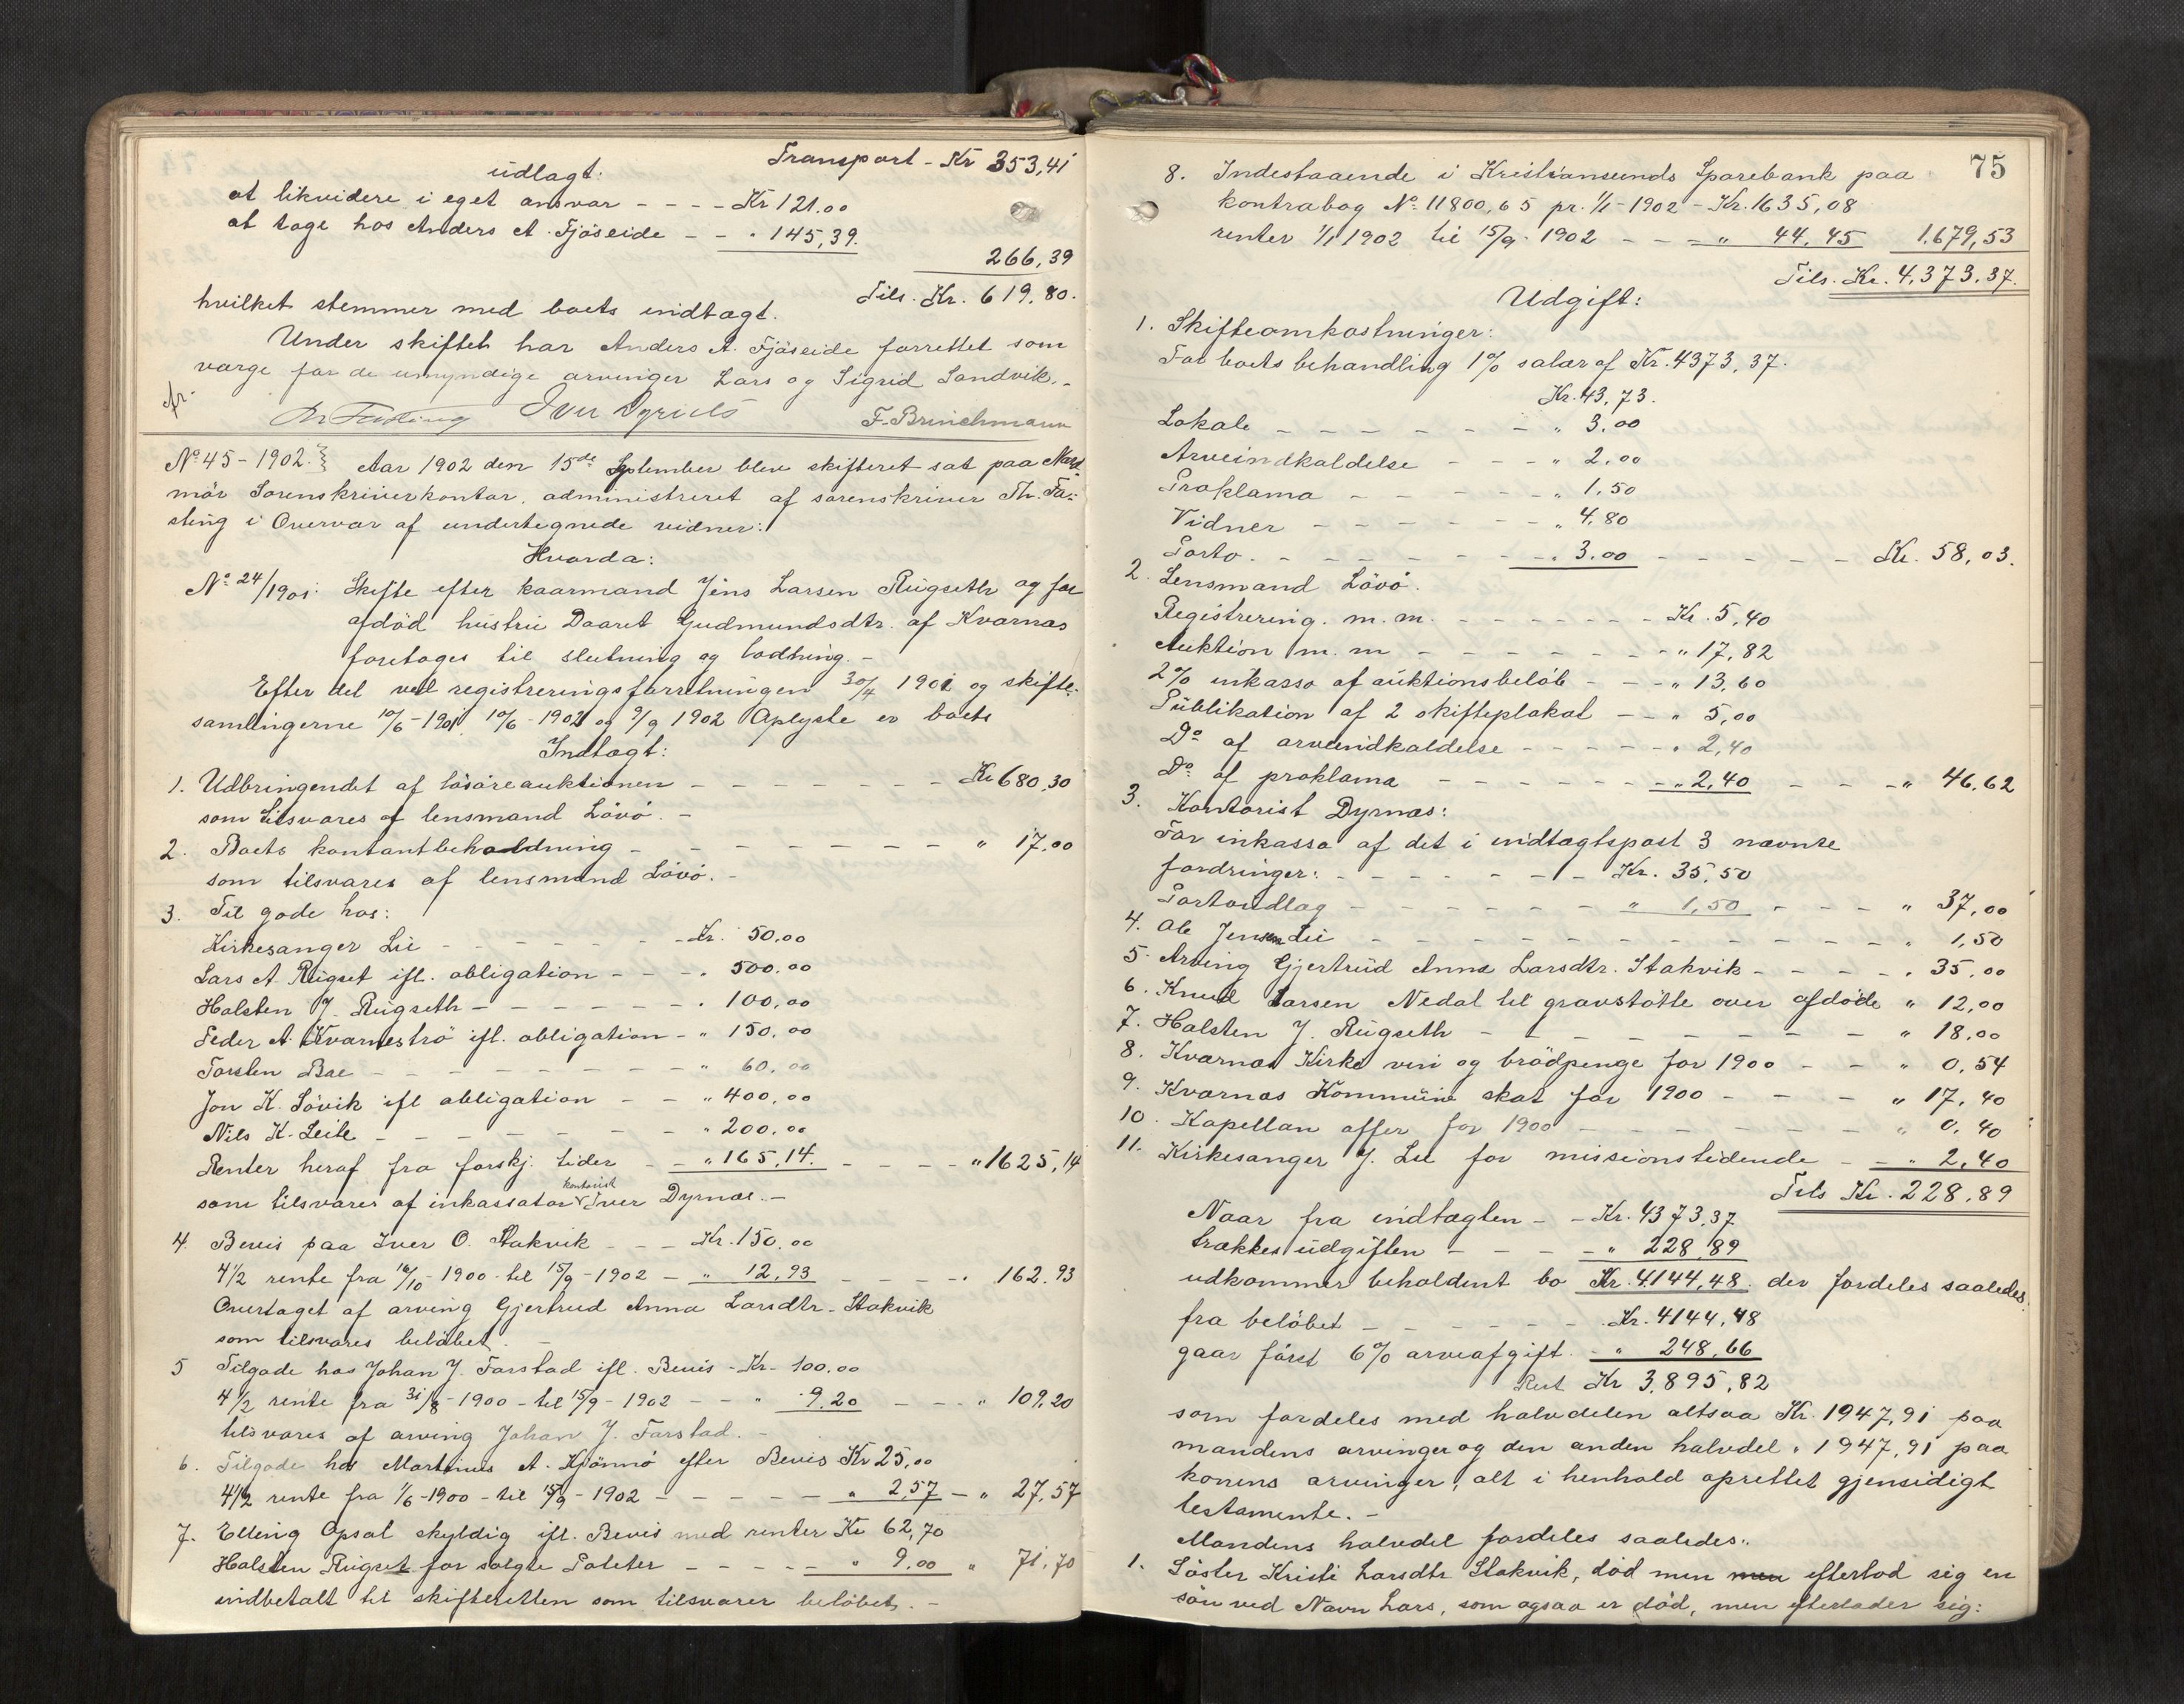 Transport - Kr 353,41
udlagt:
at likvidere i eget ansvar - - - - Kr 121.00
at tage hos Anders A. Fjöseide - - " 145,39.
266,39
Tils. Kr. 619.80.
hvilket stemmer med boets indtægt.
Under skiftet har Anders A. Fjöseide forrettet som
værge for de umyndige arvinger Lars og Sigrid Sandvik. -
Th. Fasting Iver Dyrnæs F. Brinchmann
No 45-1902. Aar 1902 den 15de September blev skifteret sat paa Nord-
mör Sorenskriverkontor, administreret af sorenskriver Th. Fa-
sting i Overvær af undertegnede vidner:
Hvorda:
No 24/1901. Skifte efter kaarmand Jens Larsen Rugseth og for
afdöd hustru Daaret Gudmundsdtr. af Kværnæs
foretages til slutning og lodning. -
Efter det ved registreringsforretningen 30/4 1901 og skifte-
samlingerne 10/6-1901, 10/6-1902 og 9/9 1902 Oplyste er boets
Indtægt:
1. Udbringendet af lösöreauktionen - - - - - - - Kr 680,30
som tilsvares af lensmand Lövö. -
2. Boets kontantbeholdning - - - - - - - - " 17.00
som tilsvares af lensmand Lövö. -
3. Til gode hos:
Kirkesanger Lie - - - - - - - Kr. 50.00
Lars A. Rugset ifl. obligation - - - " 500.00
Halsten J. Rugseth - - - - - - " 100,00
Peder A. Kvarneströ ifl. obligation - " 150,00
Torsten Bae - - - - - - - - " 60,00
Jon K. Lövik ifl obligation - - " 400,00
Nils K. Leite - - - - - - - " 200.00
Renter heraf fra forskj. tider - - " 165,14. - - - - " 1625,14
som tilsvares af inkassator kontorist Iver Dyrnæs. -
4. Bevis paa Iver O. Stokvik - - - Kr. 150.00
4 1/2 rente fra 16/10-1900 til 15/9-1902 - " 12,93 - - - - " 162.93
Overtaget af arving Gjertrud Anna Larsdtr. Stokvik
som tilsvares belöbet. -
5 Tilgode hos Johan J. Farstad ifl. Bevis - Kr. 100.00
4 1/2 rente fra 31/8-1900 - til 15/9-1902 - - " 9.20 - - - " 109,20
tilsvares af arving Johan J. Farstad. -
6. Tilgode hos Martinus A. Hjönnö efter Bevis Kr 25,00
4 1/2 rente fra 1/6-1900 - til 15/9-1902 - - - - - " 2,57 - " 27,57
7. Elling Opsal skyldig ifl. Bevis med renter Kr 62,70
Halsten Rugset for solgte Poteter - - - - - " 9.00 " 71.70
indbetalt til skifteretten som tilsvarer belöbet. -
75
8. Indestaaende i Kristiansunds Sparebank paa
kontrabog No 11800,65 pr. 1/1-1902 - Kr. 1635,08
renter 1/1 1902 til 15/9-1902 - - - " 44,45 1.679,53
Tils. Kr. 4,373,37.
Udgift:
1. Skifteomkostninger:
For boets behandling 1% salær af Kr. 4373,37.
Kr. 43,73.
Lokale - - - - - - - " 3.00
Arveindkaldelse - - - " 2,00
Proklama - - - - - - " 1,50
Vidner - - - - - - - " 4.80
Porto. - - - - - - - - " 3.00 - - - - - - Kr. 58,03.
2. Lensmand Lövö.
Registrering. m. m. - - - - - - - Kr. 5,40
Auktion m. m - - - - - - - " 17,82
2% inkasso af auktionsbelöb - - - " 13,60
Publikation af 2 skifteplakat - - " 5,00
Do af arveindkaldelse - - - - - - " 2,40
Do af proklama - - - - - - - " 2,40 - - - " 46,62
3. Kontorist Dyrnæs:
For inkasso af det i indtægtspost 3 nævnte
fordringer: - - - - - - - Kr. 35,50
Portoudlag - - - - - - - " 1,50 - - - - " 37,00
4. Ole Jensen Lie - - - - - - - - - - - - " 1,50
5. Arving Gjertrud Anna Larsdtr. Stokvik - - - - - " 35.00
6. Knud Larsen Nedal til gravstötte over afdöde " 12,00
7. Halsten J. Rugseth - - - - - - - - - - " 18.00
8. Kvarnæs Kirke vin og brödpenge for 1900 - - " 0,54
9. Kværnæs Kommune skat for 1900 - - - - " 17,40
10. Kapellan offer for 1900 - - - - - - - - " 0,40
11. Kirkesanger J. Lie for missionstidende - - " 2,40
Tils Kr. 228,89
Naar fra indtægten - - Kr. 4373,37
trækkes udgiften - - - - " 228,89
udkommer beholdent bo Kr. 4144,48 der fordeles saaledes.
fra belöbet - - - - - - Kr. 4144,48
gaar först 6% arveafgift. - " 248,66
Rest Kr 3,895,82
som fordeles med halvdelen altsaa Kr. 1947,91 paa
mandens arvinger og den anden halvdel " 1947,91 paa
konens arvinger, alt i henhold oprettet gjensidigt
testamente. -
Mandens halvdel fordeles saaledes:
1. Söster Kristi Larsdtr Stokvik, död men men efterlod sig en
sön ved Navn Lars, som ogsaa er död, men efterlader sig: